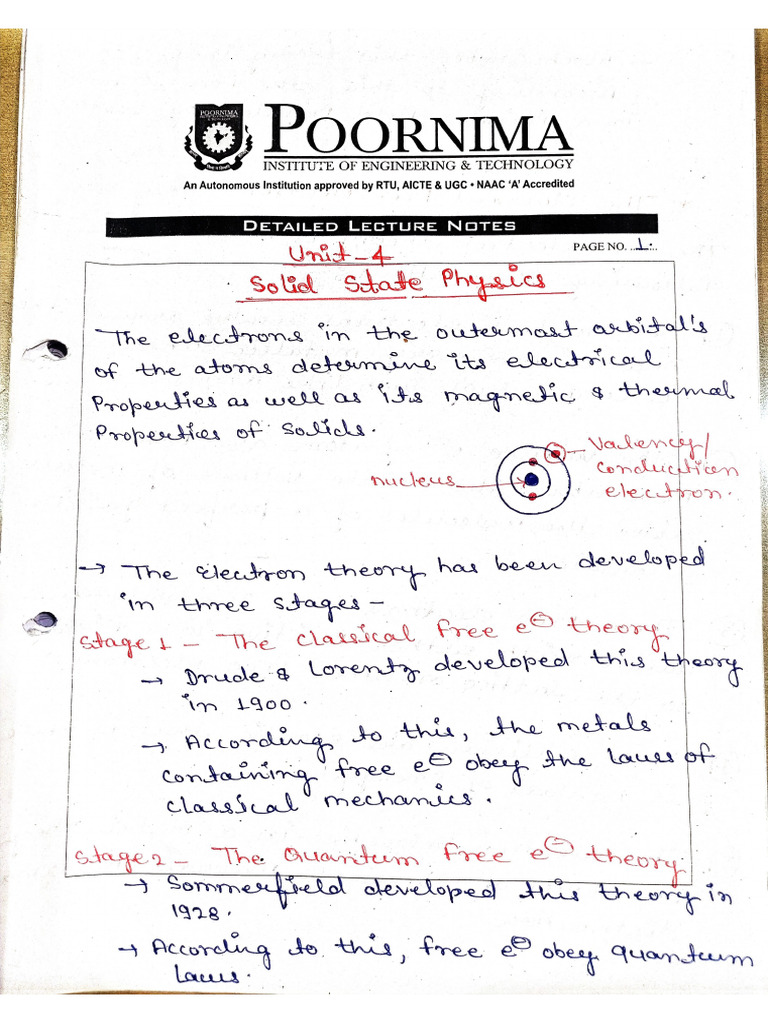 POORNIMA
POORNIMA
INSTITUTE OF ENGINEERING & TECHNOLOGY
An Autonomous Institution approved by RTU, AICTE & UGC • NAAC 'A' Accredited
DETAILED LECTURE NOTES
PAGE NO. ..1..
Unit-4
Solid State Physics
The electrons in the outermost orbital's
of the atoms determine its electrical
Properties as well as its magnetic & thermal
Properties of Solids.
nucleus
Valency/
conduction
electron.
→ The Electron theory has been developed
in three stages -
Stage 1 - The Classical free e⊖ theory
→ Drude & Lorentz developed this theory
in 1900.
→ According to this, the metals
containing free e⊖ obey the laws of
classical mechanics.
Stage 2 - The Quantum free e⊖ theory
→ Sommerfield developed this theory in
1928.
→ According to this, free e⊖ obey quantum
laws.